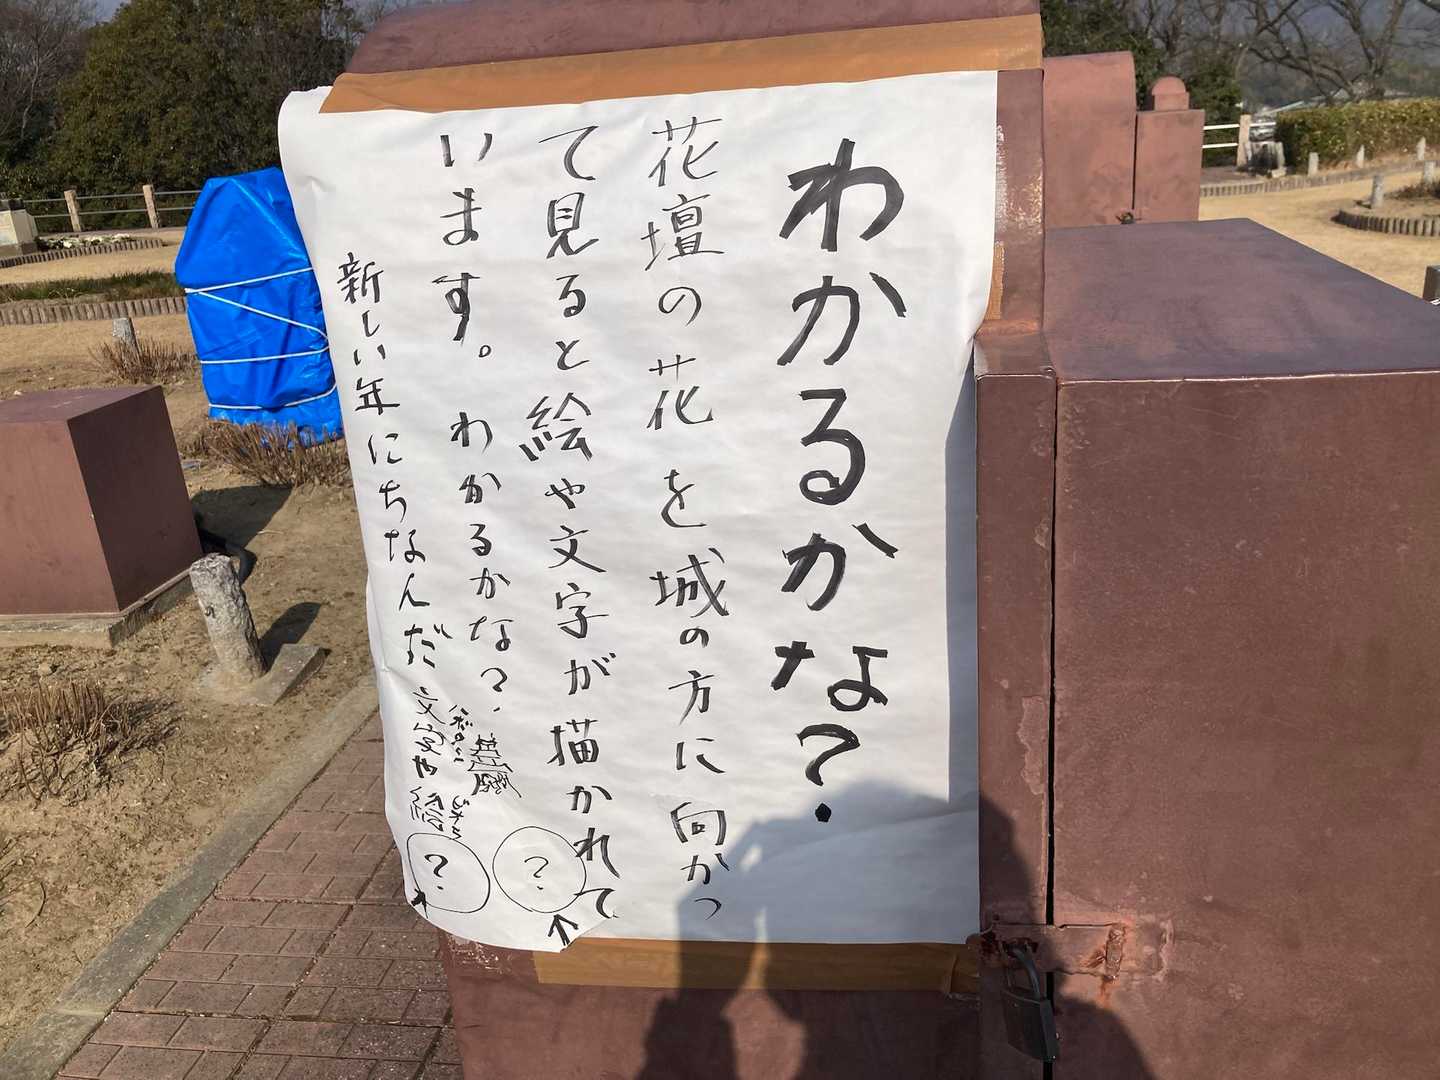 わかるかな?
花壇の花を城の方に向かっ
て見ると絵や文字が描かれて
います。わかるかな?
新しい年にちなんだ文字や絵
?
?